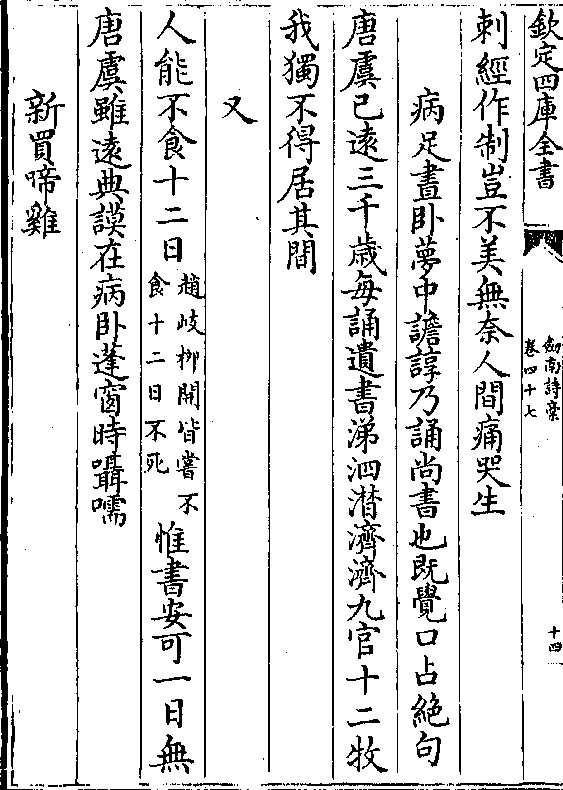 欽定四庫全書
劒南詩稾
卷四十七
十四
刺經作制豈不美無奈人間痛哭生
病足晝卧夢中譫諄乃誦尚書也既覺口占絶句
唐虞已遠三千歳每誦遺書涕泗潸濟濟九官十二牧
我獨不得居其間
又
人能不食十二日
趙岐栁開皆嘗不
食十二日不死
惟書安可一日無
唐虞雖逺典謨在病卧蓬窗時囁嚅
新買啼雞